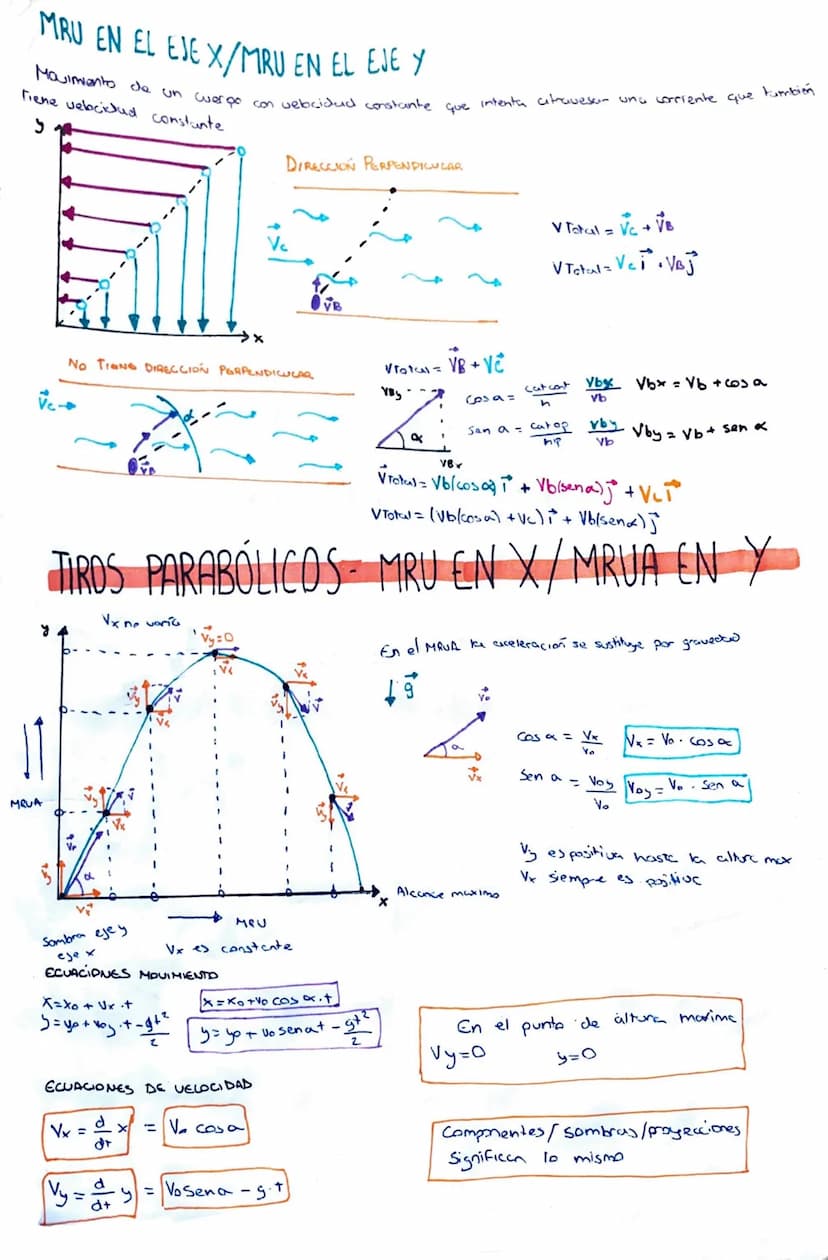 MRU EN EL EJE X/MRU EN EL EJE Y
Movimiento de un cuerpo con velocidad constante que intenta atravesar una corriente que también
tiene velocidad constante
y
x
DIRECCIÓN PERPENDICULAR
Vc
VB
VTotal = Vc + VB
VTotal = Vc i + VB j
NO TIENE DIRECCIÓN PERPENDICULAR
Vc
α
VB
VTotal = VB + VC
VBy
α
VBx
cos a = cat cont / h Vbx / Vb Vbx = Vb + cos a
sen a = cat op / hip Vby / Vb Vby = Vb + sen α
VTotal = Vb(cos a) i + Vb(sen a) j + Vc i
VTotal = (Vb(cos a) + Vc) i + Vb(sen α) j
TIROS PARABÓLICOS - MRU EN X/MRUA EN Y
Vx no varía
y
Vy=0
Vx
Vy V Vx
Vx
Vy V
MRUA
Vy V Vx
Vx
Vy V
Vo
Vy
α
Vx
x
Alcance maximo
MRU
Vx es constante
Sombra eje y
eje x
En el MRUA la aceleración se sustituye por gravedad
g
Vo
α
Vx
cos α = Vx / Vo Vx = Vo · cos α
Sen a = Voy / Vo Voy = Vo · sen a
Vy es positiva hasta la altura max
Vx siempre es positiva
ECUACIONES MOVIMIENTO
x = xo + Vx · t x = xo + vo cos α · t
y = yo + voy · t - gt² / 2 y = yo + vo sen a t - gt² / 2
En el punto de altura maxima
Vy=0 y=0
ECUACIONES DE VELOCIDAD
Vx = d/dt x = Vo cos a
Vy = d/dt y = Vo sen a - g · t
Componentes/sombras/proyecciones
significan lo mismo